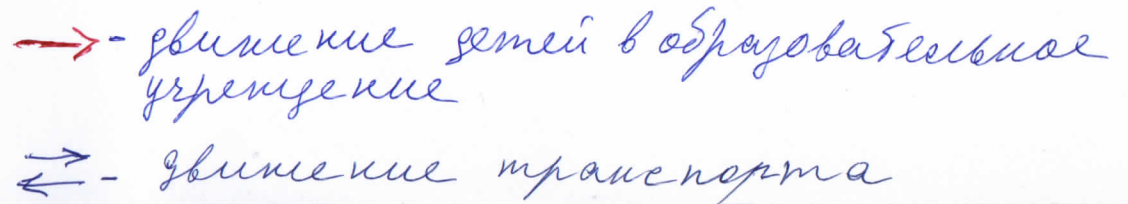 - движение детей в образовательное
учреждение
- движение транспорта